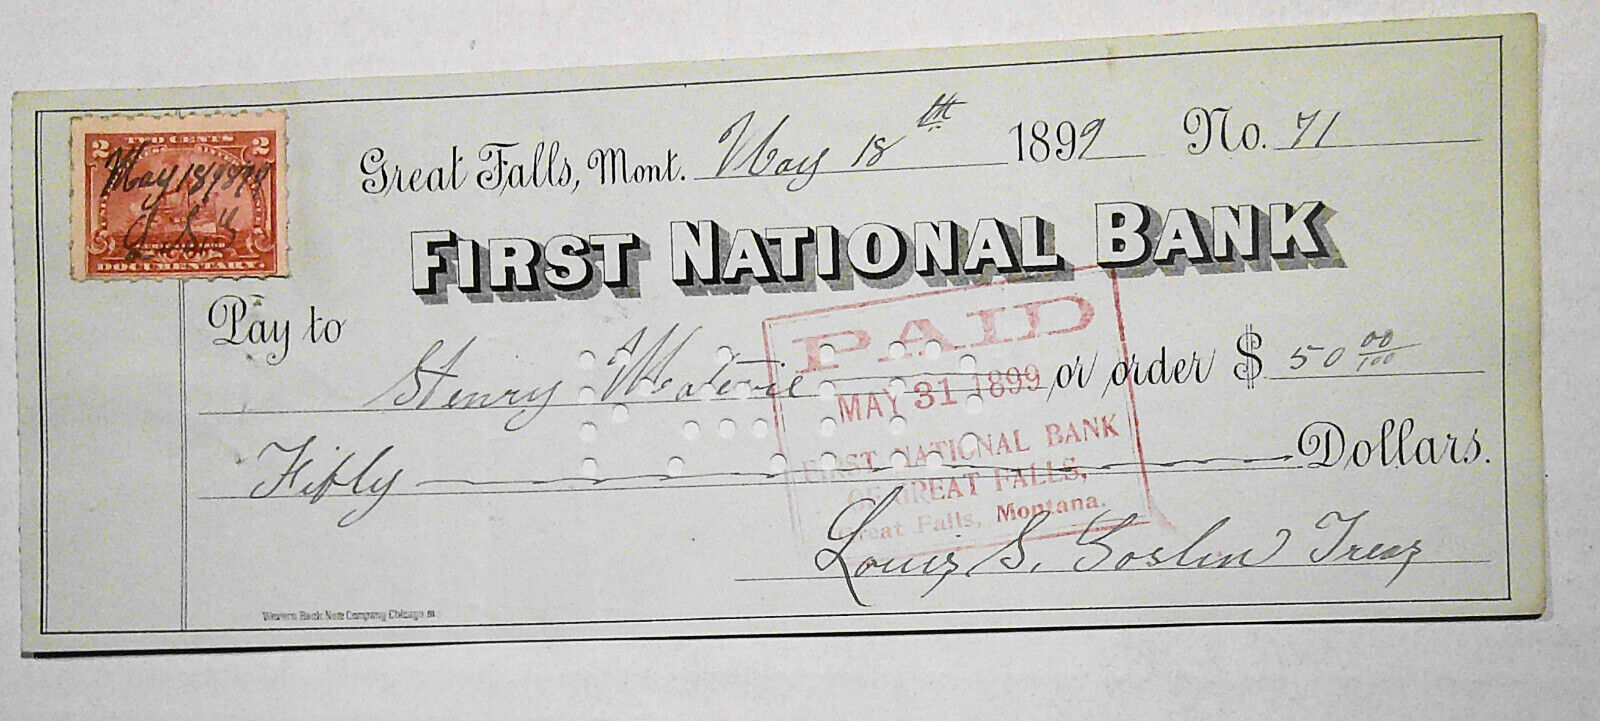 TWO CENTS
2 2
May 18 1899
DOCUMENTARY.
Great Falls, Mont. May 18th 1899 No. 71
FIRST NATIONAL BANK
Pay to Henry or order $ 50 00/100
Fifty Dollars.
PAID
MAY 31 1899
FIRST NATIONAL BANK
OF GREAT FALLS,
Great Falls, Montana.
Louis S. Goslin Treas
Western Bank Note Company Chicago